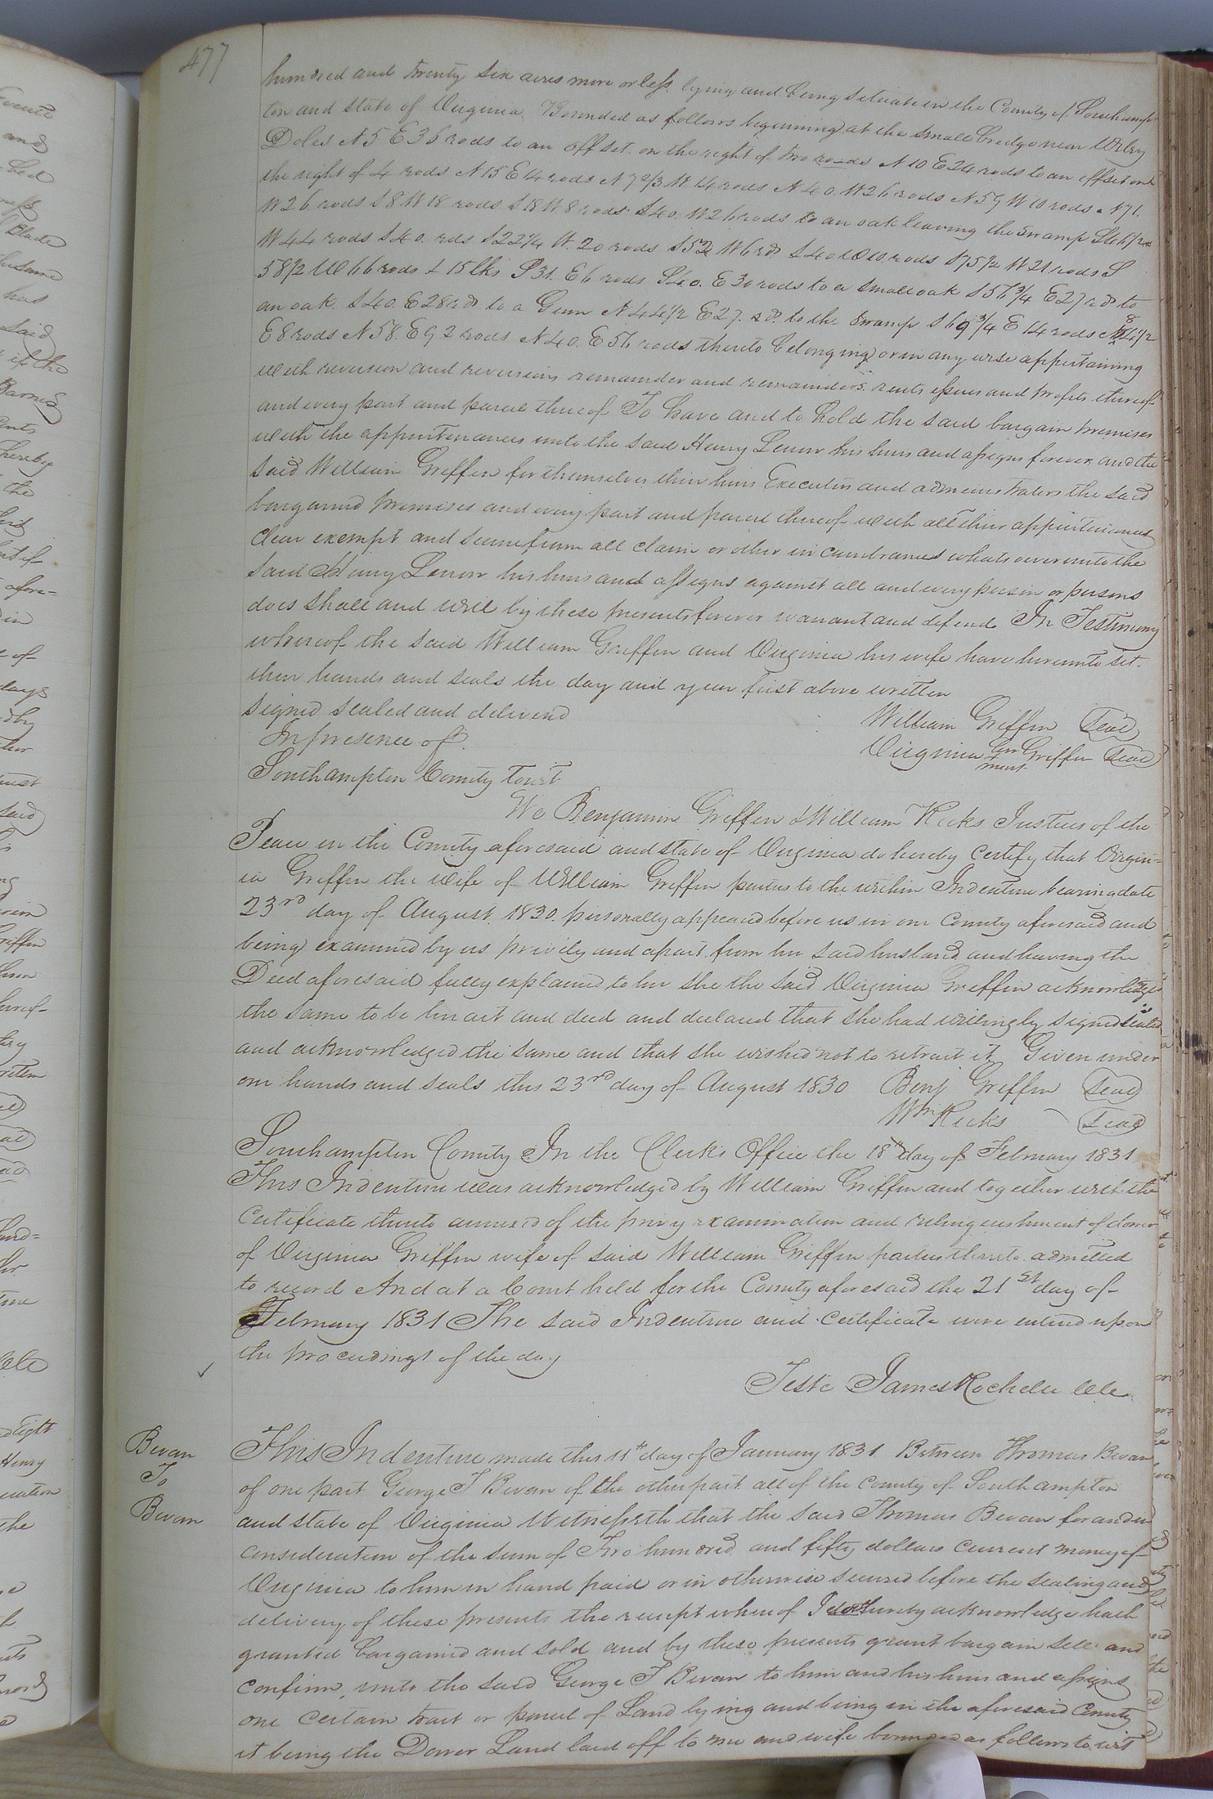 477
hundred and twenty six acres more or less lying and being situate in the County of Southamp
ton and state of Virginia Bounded as follows beginning at the small bridge near
Doles N 5 E 36 rods to an offset on the right of two rods N 10 E 24 rods to an offset on
the right of 4 rods N 15 E 14 rods N 7 2/3 W 14 rods N 40 W 26 rods N 59 W 10 rods N 71
W 26 rods S 8 W 18 rods S 18 W 8 rods S 40 W 26 rods to an oak leaving the Swamp
W 44 rods S 40 rds S 22 1/4 W 20 rods S 52 W 6 rds S 40 W 10 rods S 75 1/2 W 21 rods S
58 1/2 W 66 rods & 15 lks S 31 E 6 rods S 40 E 30 rods to a small oak S 56 3/4 E 27 rds to
an oak S 40 E 28 rds to a Gum N 44 1/2 E 27 rds to the Swamp S 69 3/4 E 14 rods
E 8 rods N 58 E 92 rods N 40 E 56 rods thereto belonging or in any wise appertaining
with reversion and reversions remainder and remainders rents issues and profits thereof
and every part and parcel thereof To have and to hold the said bargain premises
with the appurtenances unto the said Henry Lenow his heirs and assigns forever and the
said William Griffin for themselves their heirs Executors and administrators the said
bargained premises and every part and parcel thereof with all their appurtenances
clear exempt and secure from all claim or other incumbrances whatsoever unto the
said Henry Lenow his heirs and assigns against all and every person or persons
does shall and will by these presents forever warrant and defend In Testimony
whereof the said William Griffin and Virginia his wife have hereunto set
their hands and seals the day and year first above written
Signed sealed and delivered
In presence of
William Griffin (Seal)
Virginia Griffin (Seal)
Southampton County Towit
We Benjamin Griffin & William Hicks Justices of the
Peace in the County aforesaid and state of Virginia do hereby certify that Virgin=
ia Griffin the wife of William Griffin parties to the within Indenture bearing date
23rd day of August 1830 personally appeared before us in our County aforesaid and
being examined by us privily and apart from her said husband and having the
Deed aforesaid fully explained to her she the said Virginia Griffin acknowledge
the same to be her act and deed and declared that she had willingly signed sealed
and acknowledged the same and that she wished not to retract it Given under
our hands and seals this 23rd day of August 1830 Benj Griffin (Seal)
Wm Hicks (Seal)
Southampton County In the Clerks Office the 18th day of February 1831
This Indenture was acknowledged by William Griffin and together with the
Certificate thereto annexed of the privy examination and relinquishment of dower
of Virginia Griffin wife of said William Griffin parties thereto admitted
to record And at a Court held for the County aforesaid the 21st day of
February 1831 The said Indenture and certificate were entered upon
the proceedings of the day
Teste James Rochelle Clk
Bevan
To
Bevan
This Indenture made this 11th day of January 1831 Between Thomas Bevan
of one part George T Bevan of the other part all of the county of Southampton
and state of Virginia Witnesseth that the said Thomas Bevan for and in
consideration of the sum of Two hundred and fifty dollars current money of
Virginia to him in hand paid or in otherwise secured before the sealing and
delivery of these presents the receipt whereof I hereby acknowledge hath
granted bargained and sold and by these presents grant bargain sell and
confirm unto the said George T Bevan to him and his heirs and assigns
one certain tract or parcel of Land lying and being in the aforesaid County
it being the Dower Land laid off to me and wife bounded as follows to wit